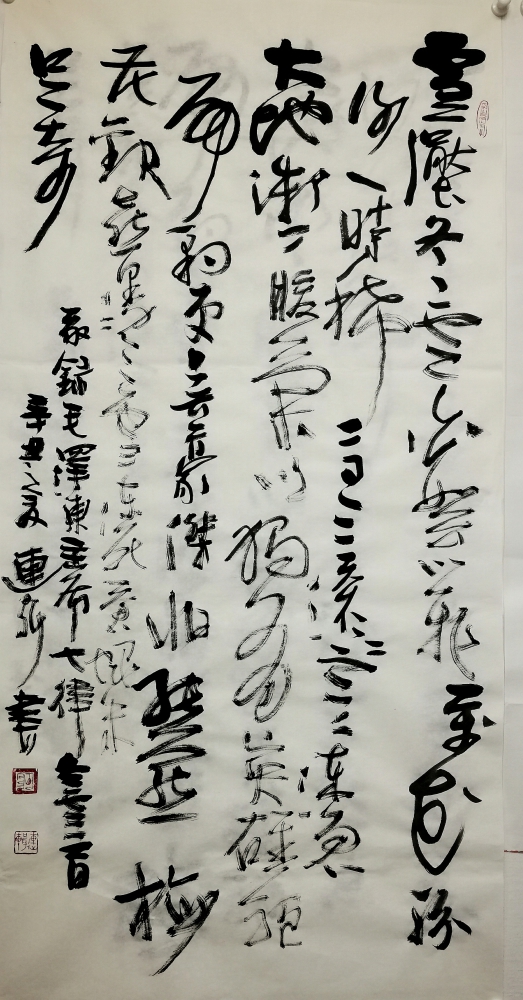 雪壓冬雲白絮飛萬花紛
謝一時稀高天滾滾寒流急
大地微微暖氣吹獨有英雄驅
虎豹更無豪傑怕熊羆梅
花歡喜漫天雪凍死蒼蠅未
足奇
錄毛澤東主席七律冬雲一首
辛丑之夏連新書